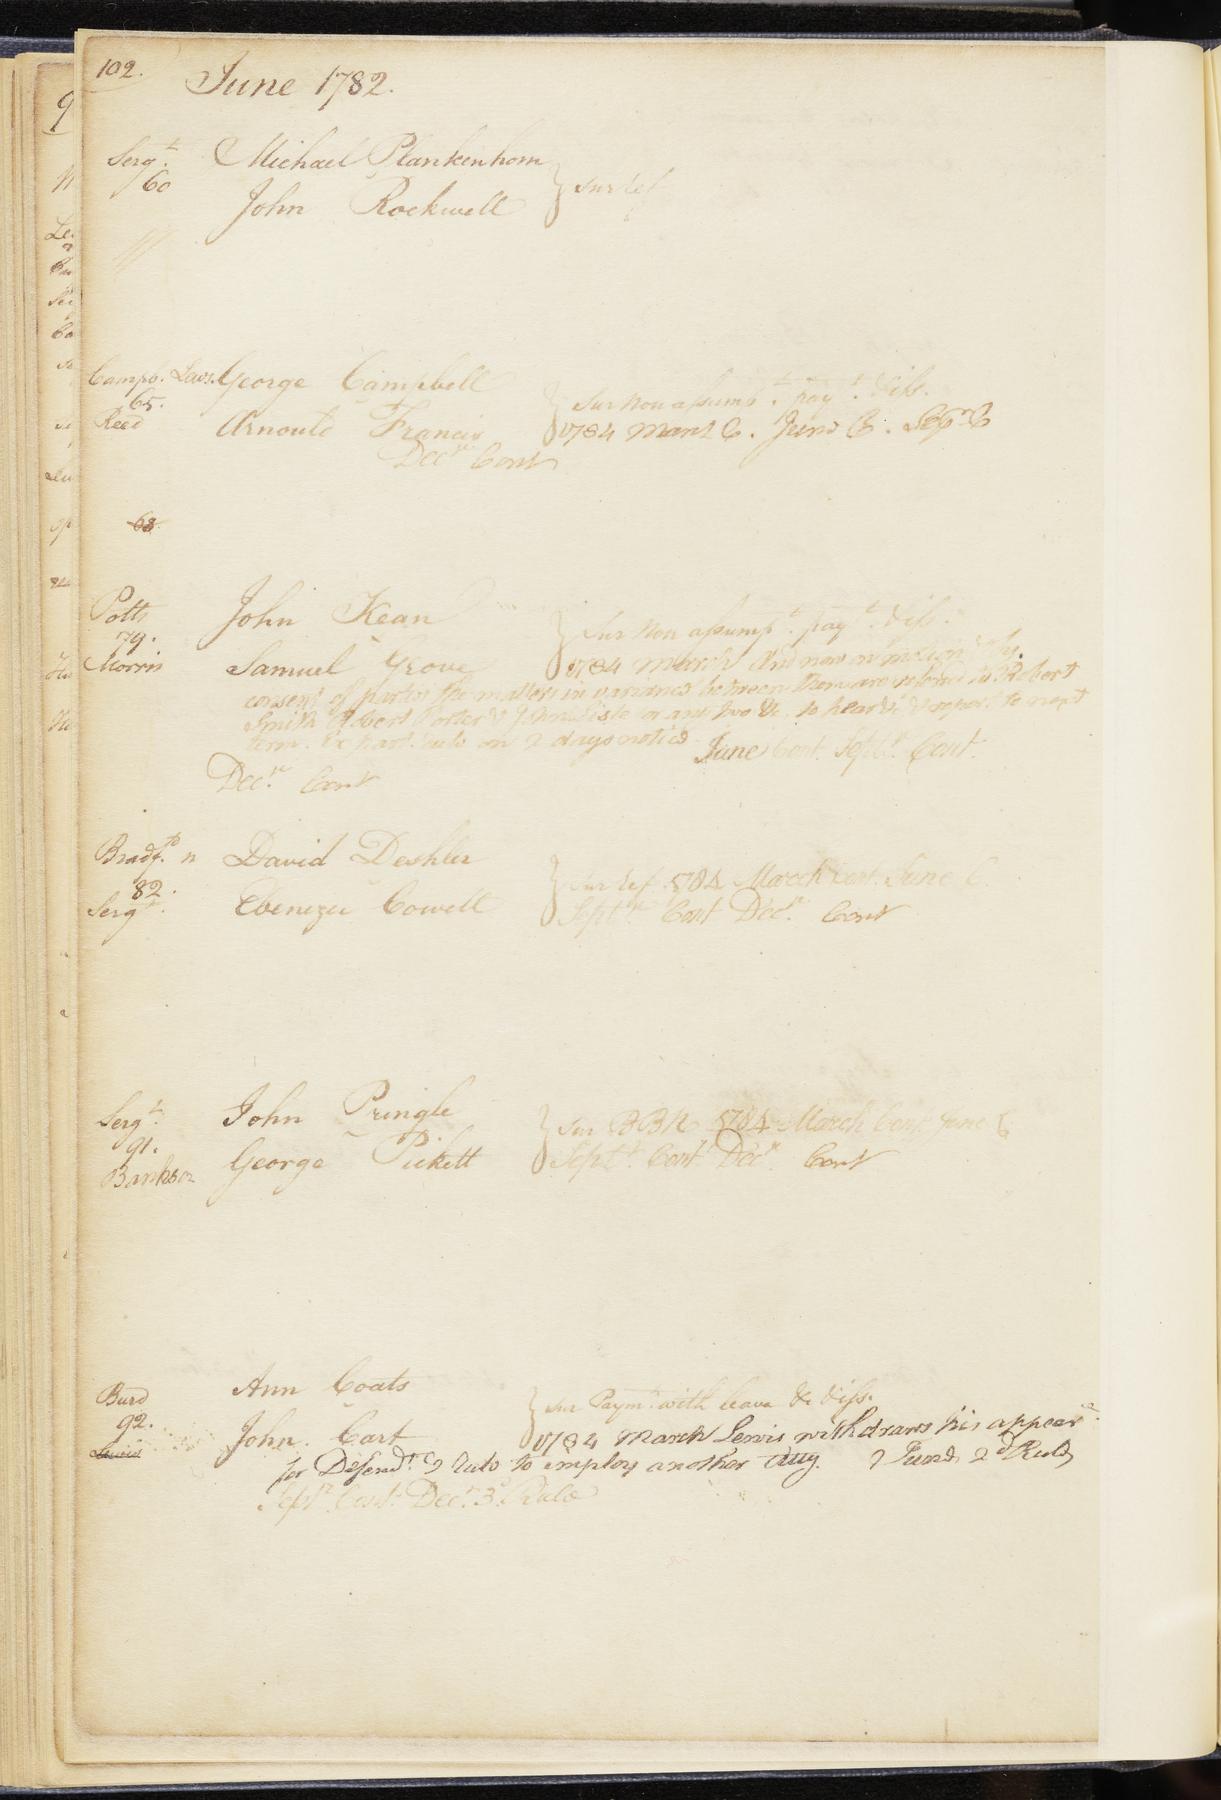 102.
June 1782.
Sergt. Michael Plankenhorn } Sur ref
60
John Rockwell
Campb. Lews. George Campbell } Sur Non assumpt. payt. & iss.
65.
Reed Arnould Francis 1784 March C. June C. Sepr C
Decr Cont
68
Potts John Kean } Sur Non assumpt. payt. & iss.
79.
Morris Samuel Grove 1784 March And now on motion & by
consent of parties the matters in variance between them are referred to Robert
Smith Robert Porter & John Lisle or any two &c. to hear &c & report to next
term. Ex parte rule on 2 days notice June Cont. Septr. Cont.
Decr. Cont
Bradfd. n David Deshler } Sur ref. 1784 March Cont. June C.
82.
Sergt. Ebenezer Cowell Septr. Cont Decr. Cont
Sergt. John Pringle } Sur BBR 1784 March Cont. June C
91.
Bankson George Pickett Septr. Cont Decr. Cont
Burd Ann Coats } Sur Paymt. with leave &c & iss.
92.
Lewis John Cart 1784 March Lewis withdraws his appearce.
for Defendt. & rule to employ another Atty. June 2d Rule
Septr. Cont. Decr. 3d. Rule